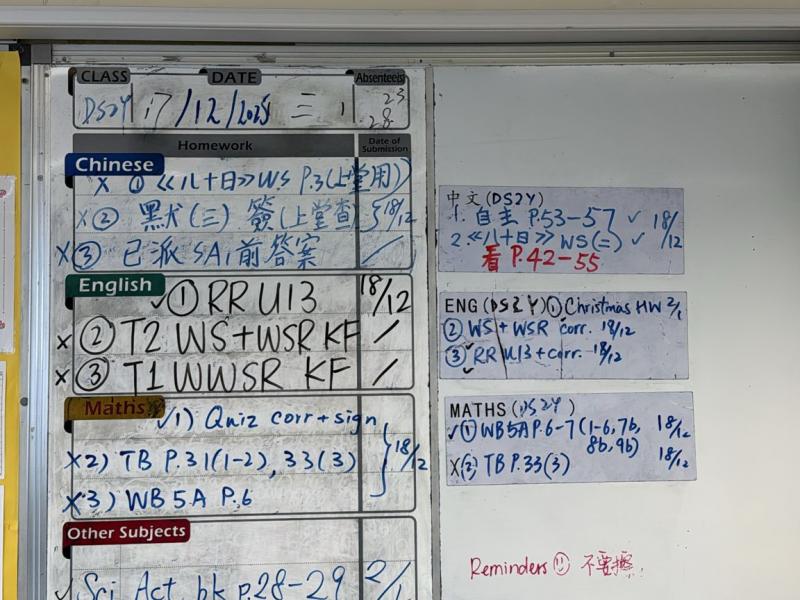 CLASS DATE Absentee(s)
DS2Y 17/12/2025 三 1 23
28
Homework Date of Submission
Chinese
X ① 《八十日》WS P.3(上堂用)
X② 黑犬(三) 簽(上堂查) 18/12
X③ 已派SA1前答案 /
English
✓① RR U13 18/12
X② T2 WS+WSR KF /
X③ T1 WWSR KF /
Maths
✓1) Quiz corr+sign
X2) TB P.31(1-2), 33(3) 18/12
X3) WB 5A P.6
Other Subjects
✓Sci Act. bk p.28-29 2/1
中文(DS2Y)
1. 自主 P.53-57 ✓ 18/12
2.《八十日》WS(二) ✓
看 P.42-55
ENG (DS2Y) ① Christmas HW 2/1
② WS+WSR corr. 18/12
③ RR U13+corr. 18/12
MATHS (DS2Y)
✓① WB5A P.6-7 (1-6, 7b, 8b, 9b) 18/12
X② TB P.33(3) 18/12
Reminders ☺ 不要擦